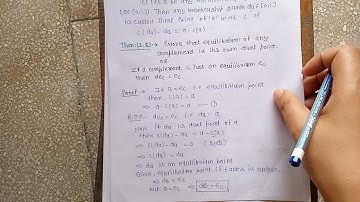 Then membership grade
is called Dual Point of 'a' w.r.t c if
c(da) - da = a - c(a)
Thm: Prove that equilibrium of any
complement is its own dual point.
or
If a complement c has an equilibrium ec
then dec = ec
Proof If a = ec i.e. equilibrium point
then c(a) = a
⇒ a - c(a) = 0 — ①
dec = ec i.e. da = a
Now if da is dual point of a
then c(da) - da = a - c(a)
⇒ c(da) - da = 0
⇒ c(da) = da
⇒ da is an equilibrium point
Since equilibrium point if exists is unique
⇒ da = ec
but a = ec ⇒ dec = ec